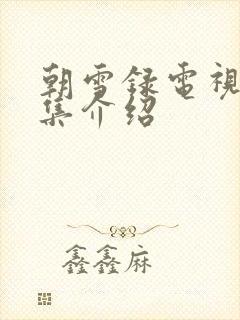 朝雪録電視
集介绍
鑫鑫麻